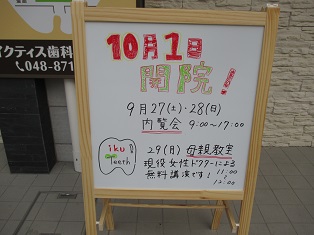 イクティス歯科
048-871
10月1日
開院!
9月27(土)・28(日)
内覧会 9:00~17:00
iku
Teeth
29(月) 母親教室
現役女性ドクターによる
無料講演です! 11:00
~
12:00